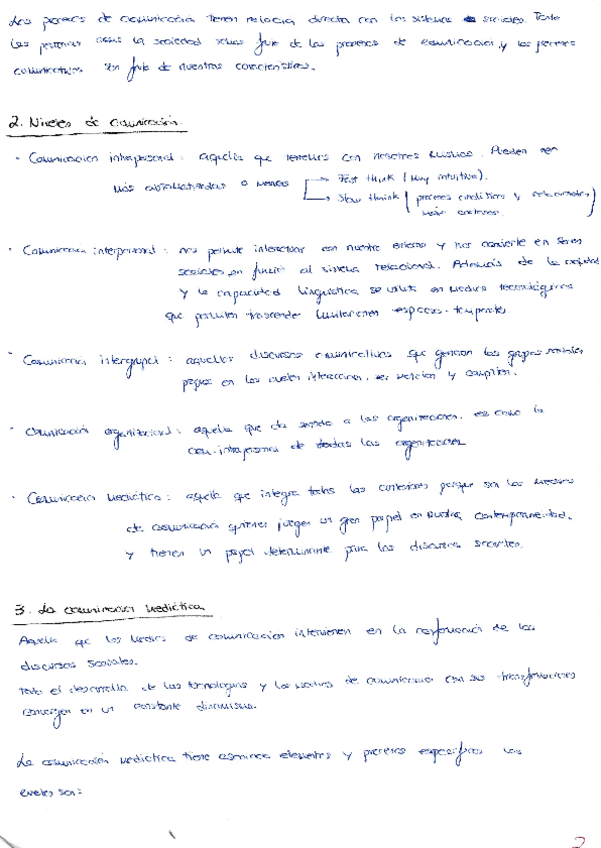 Los procesos de comunicación tienen relación directa con los sistemas sociales. Tanto
las personas como la sociedad somos fruto de los procesos de comunicación, y los procesos
comunicativos son fruto de nuestras características.
2. Niveles de comunicación
· Comunicación intrapersonal: aquella que tenemos con nosotros mismos. Pueden ser
más o menos → Fast think (muy intuitiva).
→ Slow think (procesos y
· Comunicación interpersonal: nos permite interactuar con nuestro entorno y nos convierte en seres
sociales, en función al sistema relacional. Además de la
y la capacidad lingüística se utilizan medios tecnológicos
que permiten trascender limitaciones espacio-temporales
· Comunicación intergrupal: aquellos discursos comunicativos que generan los grupos sociales
en los cuales interaccionan, y
· Comunicación organizacional: aquella que da sentido a las organizaciones. es como la
com. intrapersonal de todas las organizaciones
· Comunicación mediática: aquella que integra todas las anteriores porque son los medios
de comunicación quienes juegan un gran papel en nuestra contemporaneidad,
y tienen un papel determinante para los discursos sociales.
3. La comunicación mediática
Aquella que los medios de comunicación intervienen en la de los
discursos sociales.
Todo el desarrollo de las tecnologías y los medios de comunicación con sus transformaciones
convergen en un constante dinamismo.
La comunicación mediática tiene elementos y procesos específicos los
cuales son:
2